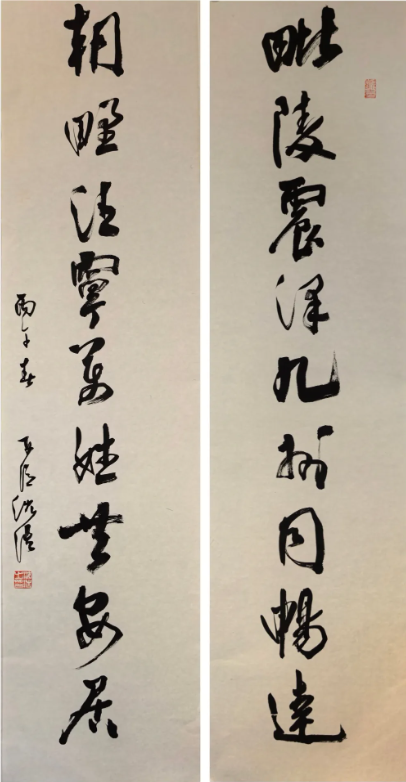 毗陵震澤九州同暢達
朝野清寧萬姓共安居
丙午春